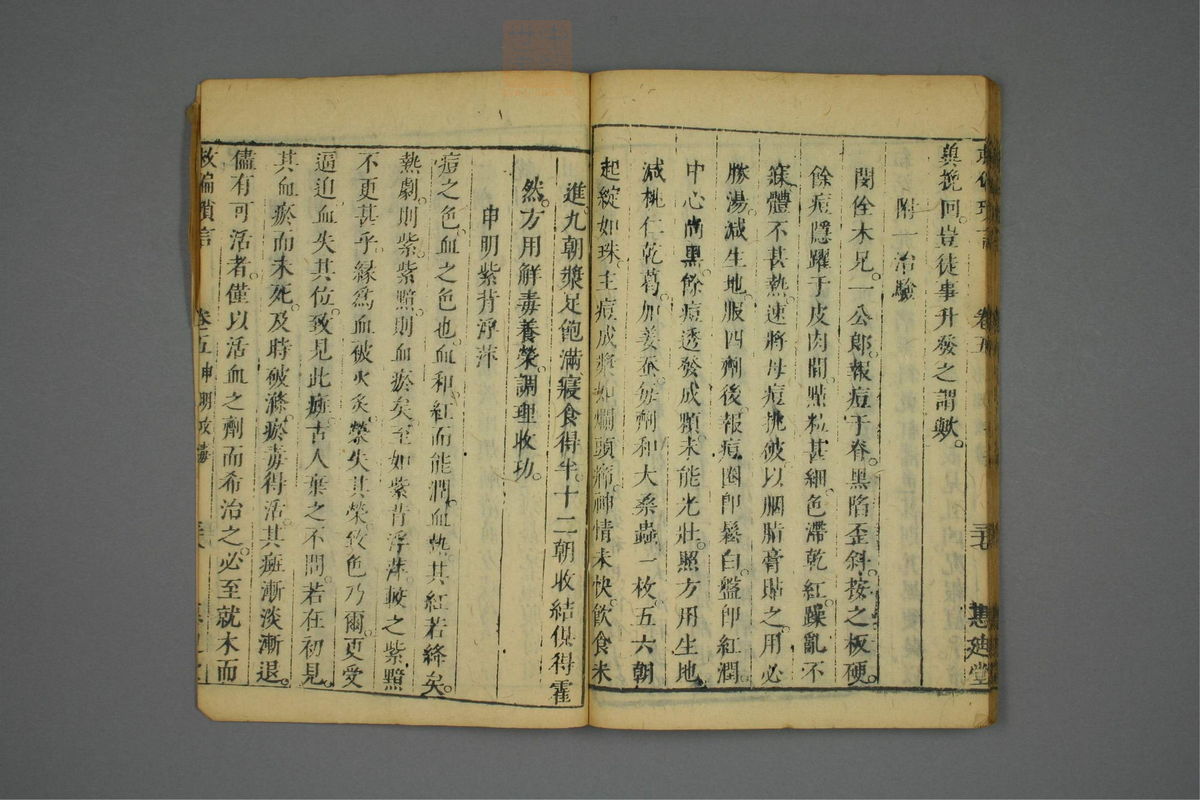 冀挽回豈徒事升發之謂歟
附一治驗
閔佺木兄一公郎報痘于脊黑陷歪斜按之板硬
餘痘隱躍于皮肉間點粒甚細色滯乾紅躁亂不
寐體不甚熱速將母痘挑破以胭脂膏貼之用必
勝湯減生地服四劑後報痘圈卽鬆白盤卽紅潤
中心尚黑餘痘透發成顆未能光壯照方用生地
減桃仁乾葛加姜蚕每劑和大桑蟲一枚五六朝
起綻如珠主痘成漿如爛頭癤神情未快飲食未
進九朝漿足飽滿寢食得半十二朝收結俱得霍
然方用解毒養榮調理收功
申明紫背浮萍
痘之色血之色也血和紅而能潤血熱其紅若絳矣
熱劇則紫紫黯則血瘀矣至如紫背浮萍較之紫黯
不更甚乎緣爲血被火炙榮失其榮致色乃爾更受
逼迫血失其位致見此癍古人棄之不問若在初見
其血瘀而未死及時破滌瘀毒得活其癍漸淡漸退
儘有可活者僅以活血之劑而希治之必至就木而
救偏瑣言 卷五 申明